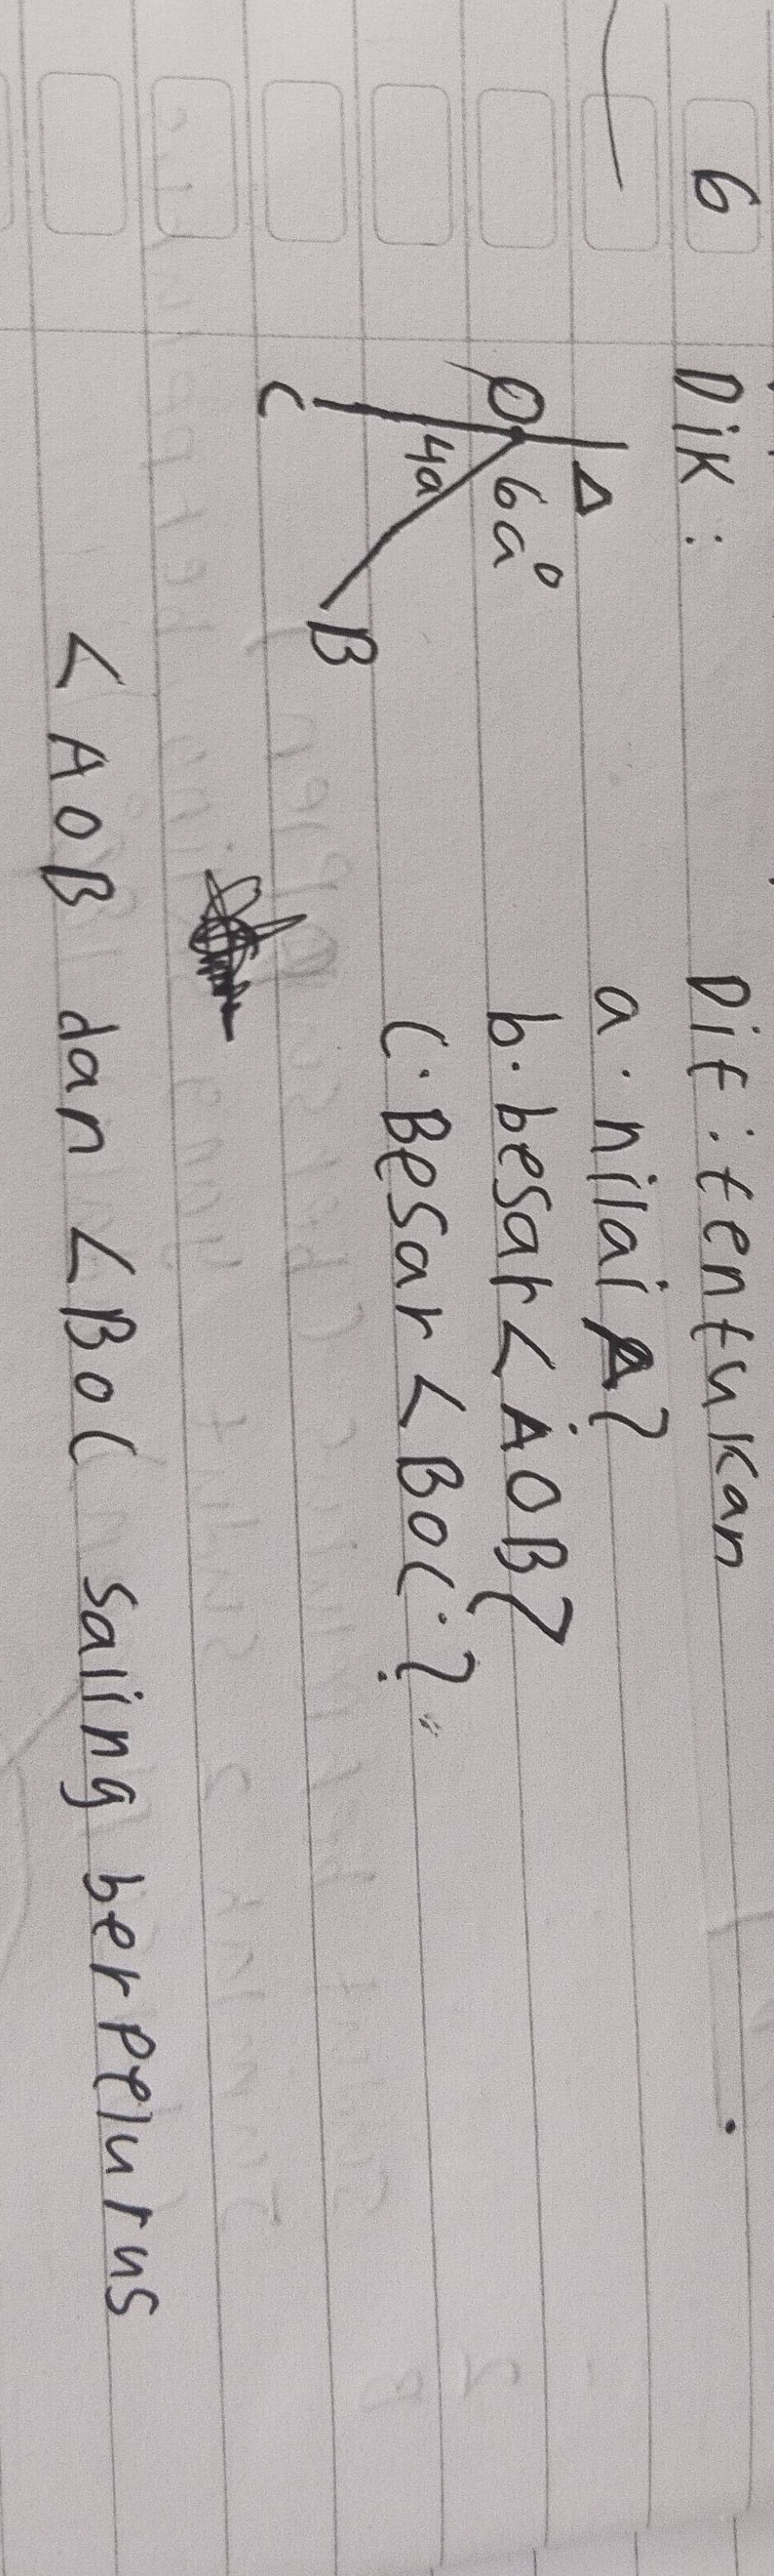 6 Dik : Dit : tentukan
A a. nilai A?
O 6a° b. besar < AOB?
4a C. Besar < BOC.?
C B
< AOB dan < BOC saling berpelurus